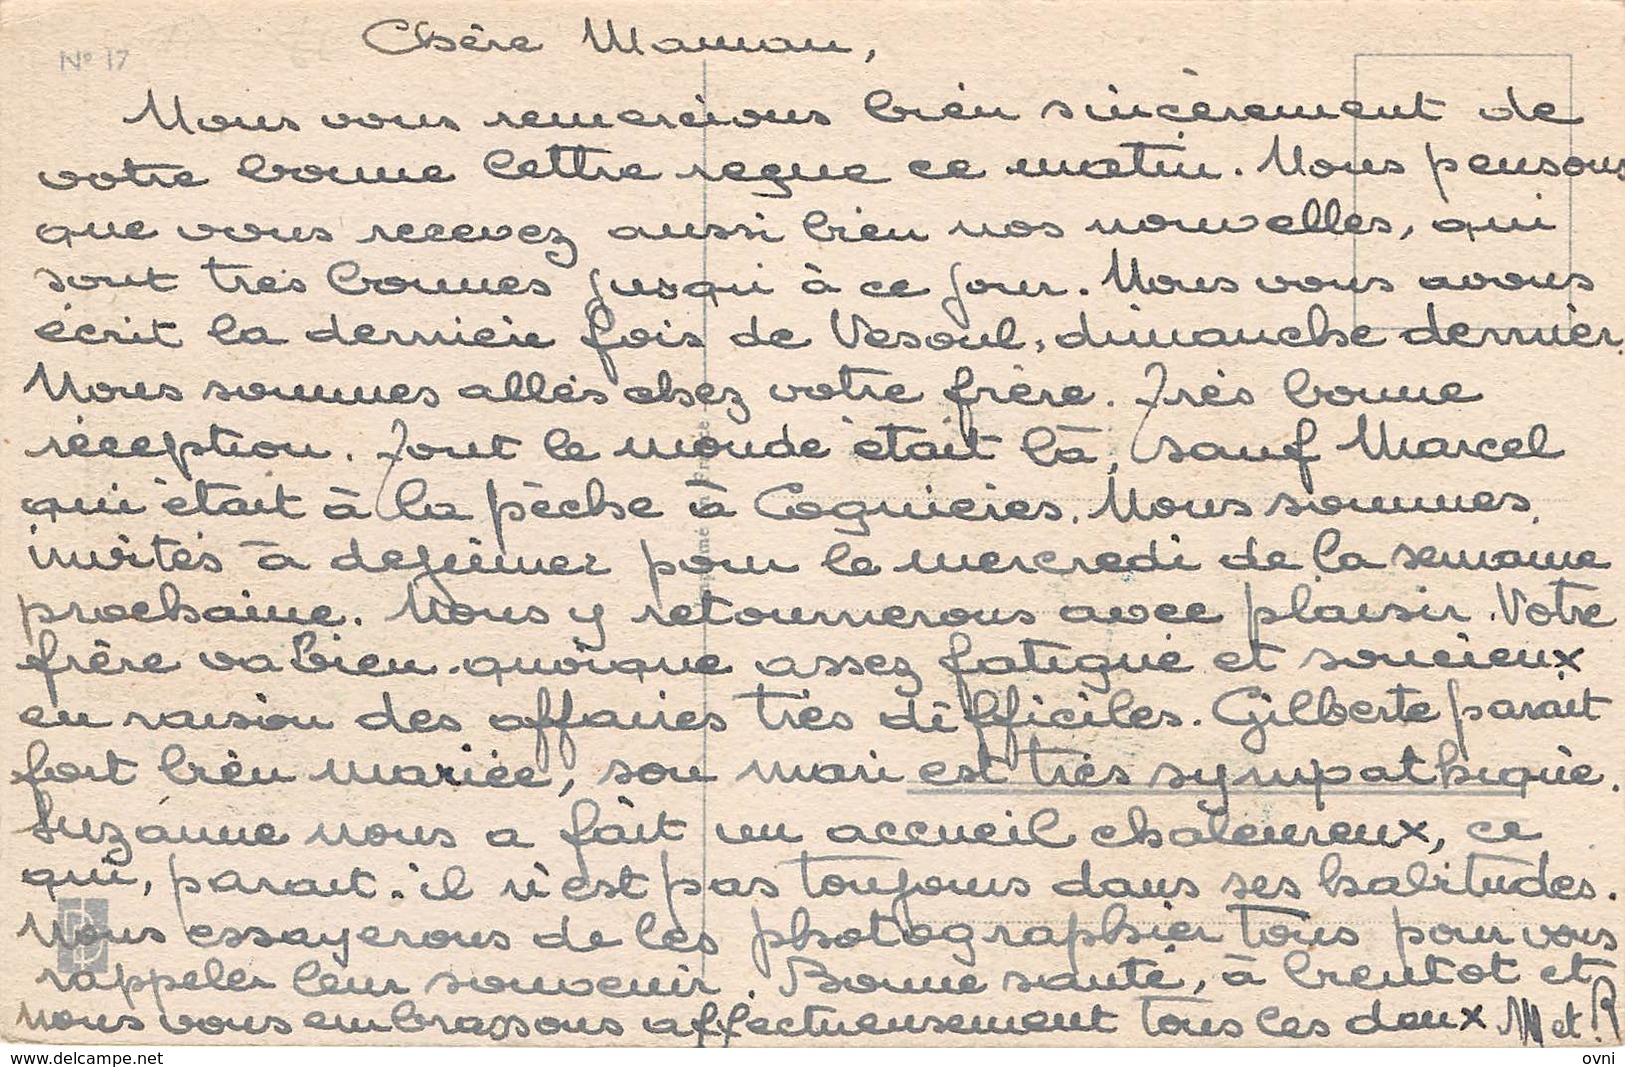 Nº 17
Chère Maman,
Nous vous remercions bien sincèrement de
votre bonne lettre reçue ce matin. Nous pensons
que vous recevez aussi bien nos nouvelles, qui
sont très bonnes jusqu'à ce jour. Nous vous avons
écrit la dernière fois de Vesoul, dimanche dernier.
Nous sommes allés chez votre frère. Très bonne
réception. Tout le monde était là, sauf Marcel
qui était à la pêche à Cognières. Nous sommes
invités à déjeuner pour le mercredi de la semaine
prochaine. Nous y retournerons avec plaisir. Votre
frère va bien quoique assez fatigué et soucieux
en raison des affaires très difficiles. Gilberte parait
fort bien mariée, son mari est très sympathique.
Suzanne nous a fait un accueil chaleureux, ce
qui, parait-il n'est pas toujours dans ses habitudes.
Nous essayerons de les photographier tous pour vous
rappeler leur souvenir. Bonne santé, à bientot et
nous vous embrassons affectueusement tous les deux M et R
www.delcampe.net
ovni